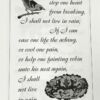 stop one heart
from breaking,
I shall not live in vain;
If I can
ease one life the aching,
or cool one pain,
or help one fainting robin
unto his nest again,
I shall
not live
in vain.